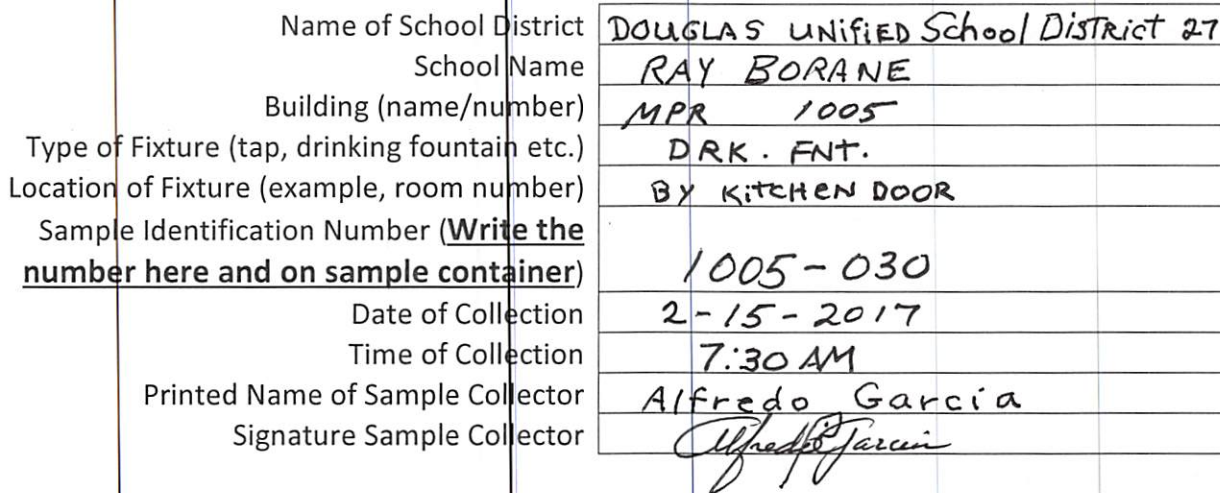 Name of School District DOUGLAS UNiFiED School DisTRict 27
School Name RAY BORANE
Building (name/number) MPR 1005
Type of Fixture (tap, drinking fountain etc.) DRK. FNT.
Location of Fixture (example, room number) BY KiTCHEN DOOR
Sample Identification Number (Write the
number here and on sample container) 1005-030
Date of Collection 2-15-2017
Time of Collection 7:30 AM
Printed Name of Sample Collector Alfredo Garcia
Signature Sample Collector Alfredo Garcia